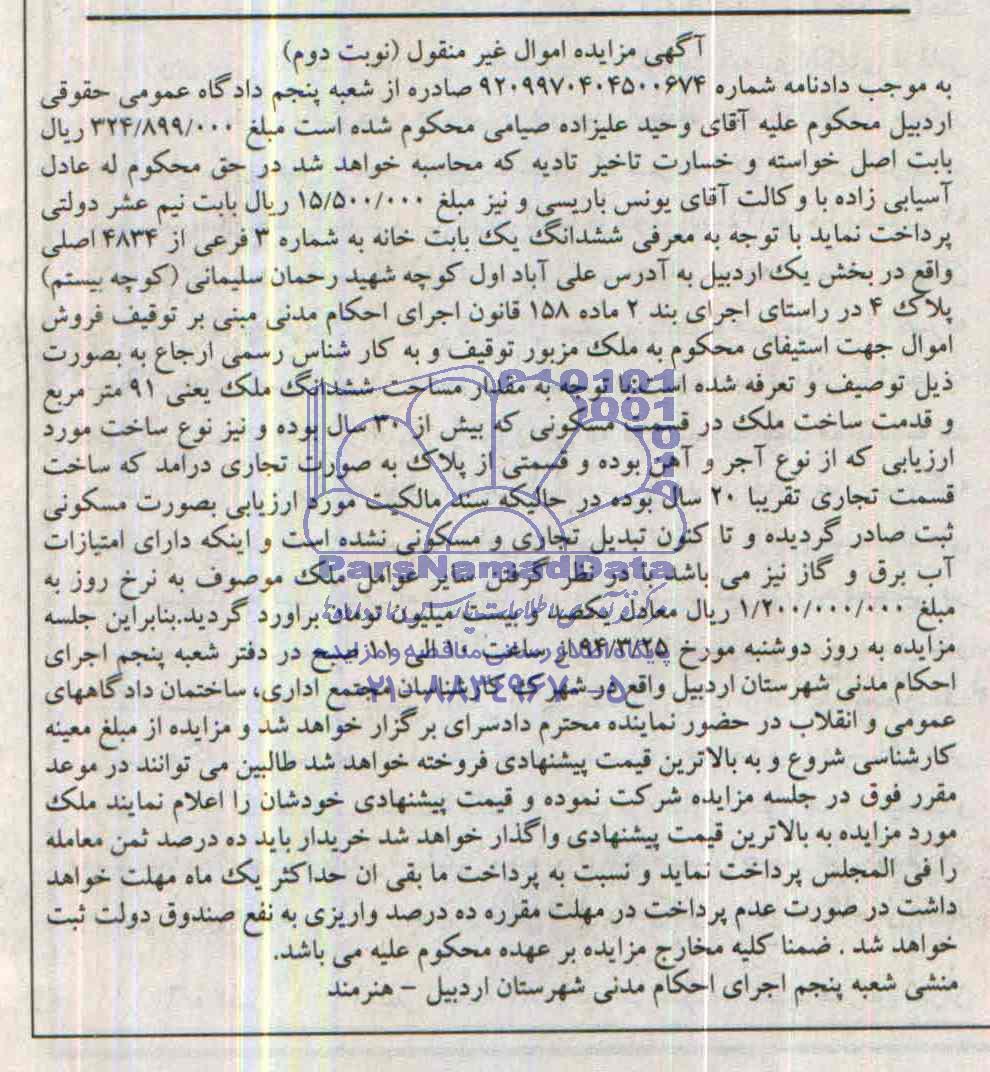 آگهی مزایده اموال غیر منقول (نوبت دوم)
به موجب دادنامه شماره ۹۲۰۹۹۷۰۴۰۴۵۰۰۶۷۴ صادره از شعبه پنجم دادگاه عمومی حقوقی
اردبیل محکوم علیه آقای وحید علیزاده صیامی محکوم شده است مبلغ ۳۲۴/۸۹۹/۰۰۰ ریال
بابت اصل خواسته و خسارت تاخیر تادیه که محاسبه خواهد شد در حق محکوم له عادل
آسیابی زاده با وکالت آقای یونس باریسی و نیز مبلغ ۱۵/۵۰۰/۰۰۰ ریال بابت نیم عشر دولتی
پرداخت نماید با توجه به معرفی ششدانگ یک بابت خانه به شماره ۳ فرعی از ۴۸۳۴ اصلی
واقع در بخش یک اردبیل به آدرس علی آباد اول کوچه شهید رحمان سلیمانی (کوچه بیستم)
پلاک ۴ در راستای اجرای بند ۲ ماده ۱۵۸ قانون اجرای احکام مدنی مبنی بر توقیف فروش
اموال جهت استیفای محکوم به ملک مزبور توقیف و به کار شناس رسمی ارجاع به بصورت
ذیل توصیف و تعرفه شده است: با توجه به مقدار مساحت ششدانگ ملک یعنی ۹۱ متر مربع
و قدمت ساخت ملک در قسمت مسکونی که بیش از ۳۰ سال بوده و نیز نوع ساخت مورد
ارزیابی که از نوع آجر و آهن بوده و قسمتی از پلاک به صورت تجاری درامد که ساخت
قسمت تجاری تقریبا ۲۰ سال بوده در حالیکه سند مالکیت مورد ارزیابی بصورت مسکونی
ثبت صادر گردیده و تا کنون تبدیل تجاری و مسکونی نشده است و اینکه دارای امتیازات
آب برق و گاز نیز می باشد با در نظر گرفتن سایر عوامل ملک موصوف به نرخ روز به
ParsNamadData
مبلغ ۱/۲۰۰/۰۰۰/۰۰۰ ریال معادل یکصد و بیست میلیون تومان براورد گردید.بنابراین جلسه
مزایده به روز دوشنبه مورخ ۹۴/۳/۲۵ از ساعت ۱۰ الی ۱۱ صبح در دفتر شعبه پنجم اجرای
احکام مدنی شهرستان اردبیل واقع در شهرک کارشناسان مجتمع اداری، ساختمان دادگاههای
۰۲۱-۸۸۳۴۹۶۷۰-۵
عمومی و انقلاب در حضور نماینده محترم دادسرای برگزار خواهد شد و مزایده از مبلغ معینه
کارشناسی شروع و به بالاترین قیمت پیشنهادی فروخته خواهد شد طالبین می توانند در موعد
مقرر فوق در جلسه مزایده شرکت نموده و قیمت پیشنهادی خودشان را اعلام نمایند ملک
مورد مزایده به بالاترین قیمت پیشنهادی واگذار خواهد شد خریدار باید ده درصد ثمن معامله
را فی المجلس پرداخت نماید و نسبت به پرداخت ما بقی ان حداکثر یک ماه مهلت خواهد
داشت در صورت عدم پرداخت در مهلت مقرره ده درصد واریزی به نفع صندوق دولت ثبت
خواهد شد . ضمنا کلیه مخارج مزایده بر عهده محکوم علیه می باشد.
منشی شعبه پنجم اجرای احکام مدنی شهرستان اردبیل - هنرمند